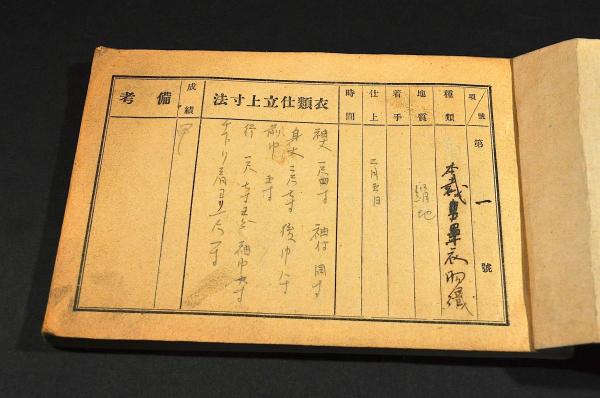 項號 第一號
種類 本裁男單衣羽織
地質 絹地
着手
仕上 二月五日
時間
衣類仕立上寸法
袖丈 一尺四寸 袖付 四寸
身丈 二尺七寸 後巾 八寸
前巾 五寸
行 一尺七寸五分 袖巾 九寸
成績 甲
備考